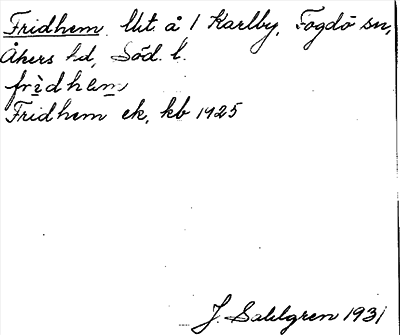 Fridhem. lht. å 1 Karlby, Fogdö sn,
Åkers hd, Söd. l.
frìdhem
Fridhem ek, kb 1925
J. Sahlgren 1931